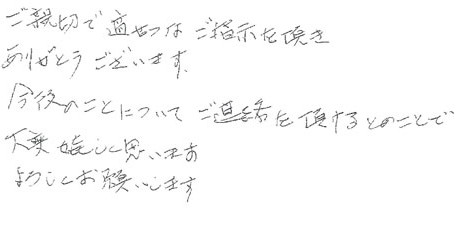 ご親切で適切なご指示を頂き
ありがとうございます。
今後のことについてご連絡を頂けるとのことで
大変嬉しく思います
よろしくお願いします